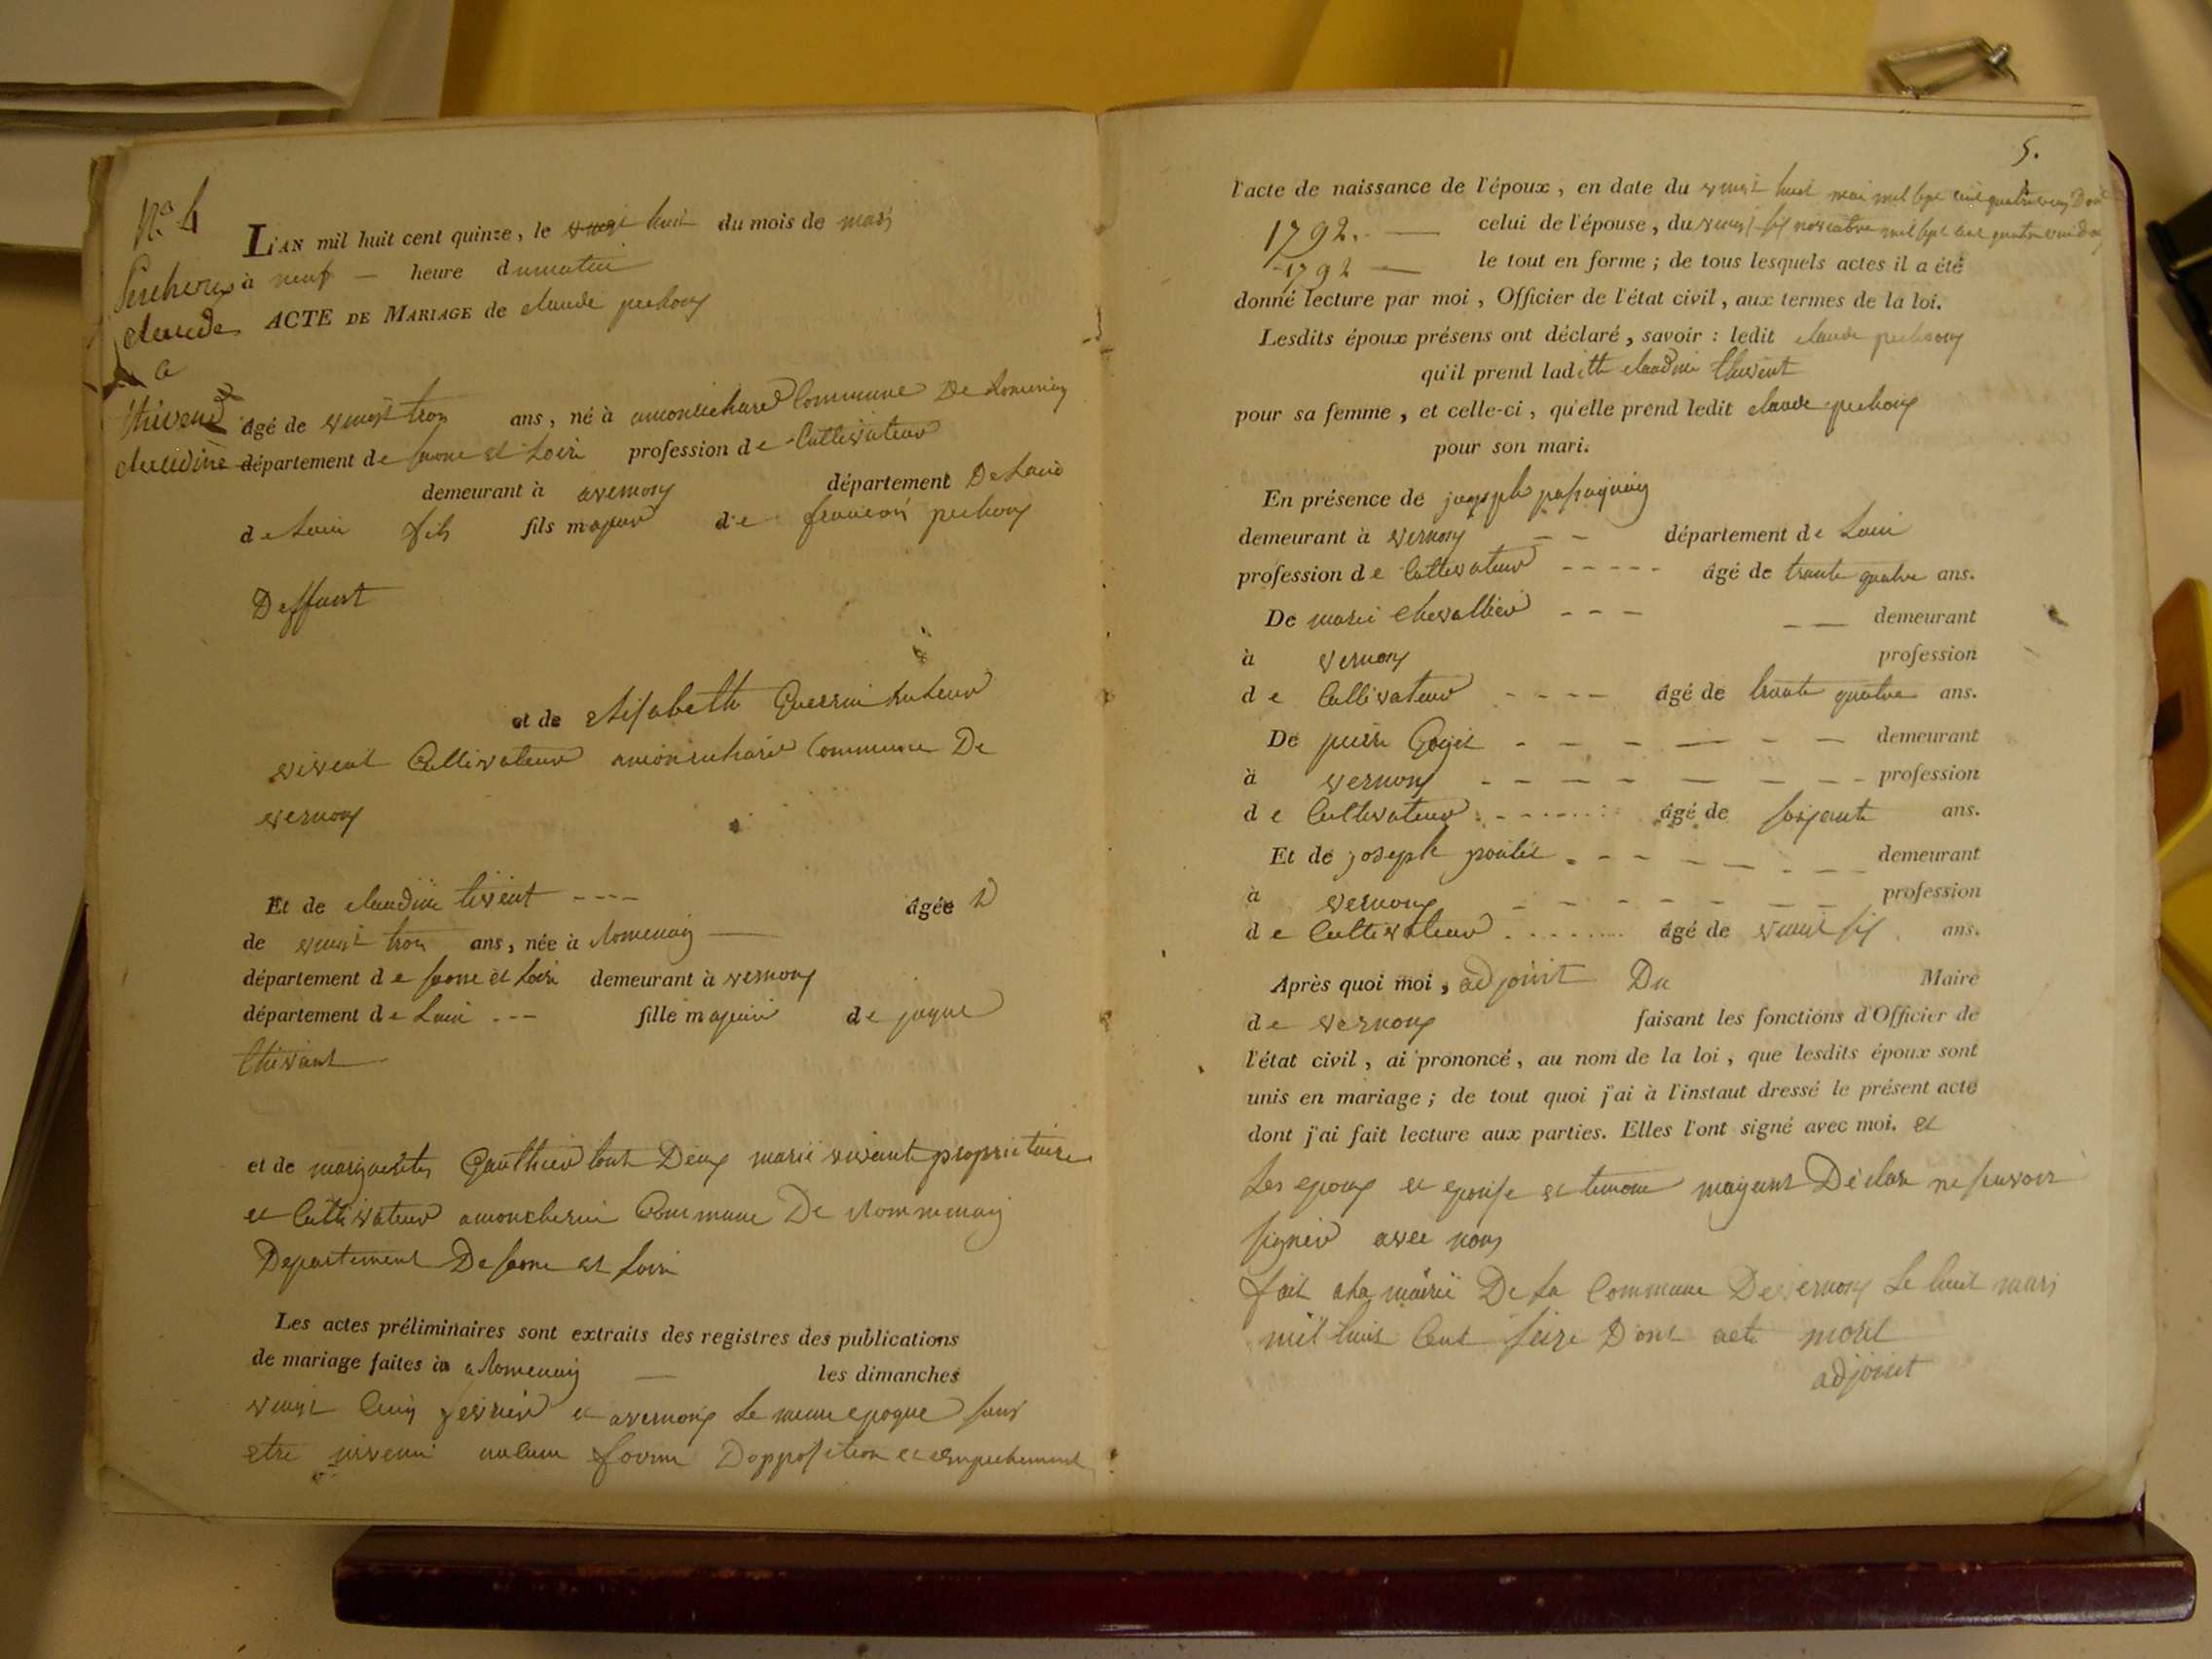 N.o 4
claude
a
thivend
claudine
L'AN mil huit cent quinze, le vingt huit du mois de mars
à neuf — heure du matin
ACTE DE MARIAGE de claude pechoux
âgé de vingt trois ans, né à commune De Romenay
département de saone et Loire profession de Cultivateur
demeurant à avernoux département De Lain
de Lain fils fils majeur de pechoux
Deffunt
et de Elisabeth Guerrin
vivent Cultivateur Commune De
vernoux
Et de claudine tivent - - - - âgée
de vingt trois ans, née à Romenay —
département de saone et Loire demeurant à vernoux
département de Lain - - - fille majeur de jaque
thivant
et de marguerite Gauthier tout Deux marié vivant propriétaire
et Cultivateur Commune De Rommenay
Departement De saone et Loire
Les actes préliminaires sont extraits des registres des publications
de mariage faites à a Romenay — les dimanches
vingt Cinq fevrier et avernoux Le meme epoque sans
etre aucune forme D'opposition et empechement
5.
l'acte de naissance de l'époux, en date du vingt huit mai mil sept cent quatre ving Douze
1792. — celui de l'épouse, du vingt six novembre mil sept cent quatre vin
1792 — le tout en forme; de tous lesquels actes il a été
donné lecture par moi, Officier de l'état civil, aux termes de la loi.
Lesdits époux présens ont déclaré, savoir : ledit claude pechoux
qu'il prend laditte claudine thivent
pour sa femme, et celle-ci, qu'elle prend ledit claude pechoux
pour son mari.
En présence de joseph
demeurant à vernoux - - département de Lain
profession de Cultivateur - - - - - âgé de trante quatre ans.
De marie chevallier - - - - - demeurant
à vernoux profession
de Cultivateur - - - - âgé de trante quatre ans.
De pierre Goyet - - - - - - demeurant
à vernoux - - - - - - - - profession
de Cultivateur - - - - - âgé de soixante ans.
Et de joseph - - - - - - - demeurant
à vernoux - - - - - - - profession
de Cultivateur . . . . . . . . âgé de vingt six ans.
Après quoi moi, adjoint Du Maire
de vernoux faisant les fonctions d'Officier de
l'état civil, ai prononcé, au nom de la loi, que lesdits époux sont
unis en mariage; de tout quoi j'ai à l'instaut dressé le présent acte
dont j'ai fait lecture aux parties. Elles l'ont signé avec moi. et
Les epoux et epouse et temoin Declare ne savoir
signer avec nous
fait a la mairie De La Commune De vernoux Le huit mars
mil huit Cent seize Dont acte morel
adjoint